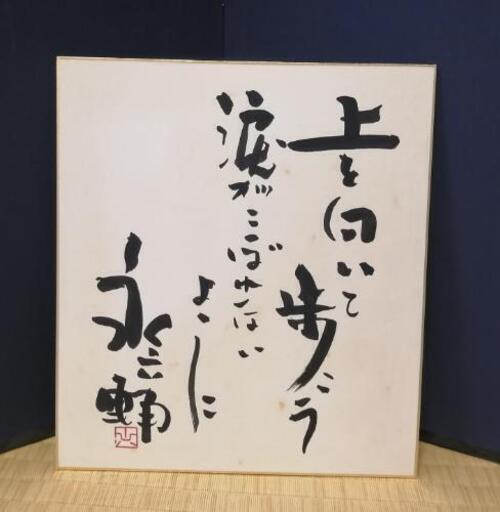 上を向いて
歩こう
涙がこぼれない
ように
永六輔